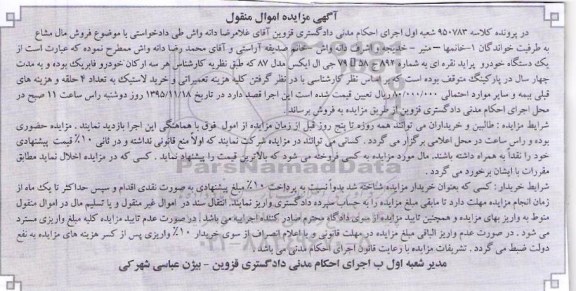 آگهی مزایده اموال منقول
در پرونده کلاسه ۹۵۰۷۸۳ شعبه اول اجرای احکام مدنی دادگستری قزوین آقای غلامرضا دانه واش طی دادخواستی با موضوع فروش مال مشاع
به طرفیت خواندگان ۱-خانمها -منیر - خدیجه - اشرف دانه واش - خانم صدیقه آراستی و آقای محمد رضا دانه واش مطرح نموده که عبارت است از
یک دستگاه خودرو پراید نقره ای به شماره ۸۹۲ ۵۸ ۷۹ جی ال ایکس مدل ۸۷ که طبق نظریه کارشناس هر سه ارکان خودرو فابریک بوده و به مدت
چهار سال در پارکینگ متوقف بوده است که بر اساس نظر کارشناسی با در نظر گرفتن کلیه هزینه تعمیراتی و خرید لاستیک به تعداد ۴ حلقه و هزینه های
قبلی بیمه و سایر موارد احتمالی ۸۰/۰۰۰/۰۰۰ ریال تعیین قیمت شده است این اجرا قصد دارد در تاریخ ۱۳۹۵/۱۱/۱۸ روز دوشنبه راس ساعت ۱۱ صبح در
محل اجرای احکام مدنی دادگستری قزوین از طریق مزایده به فروش برساند.
شرایط مزایده : طالبین و خریداران می توانند همه روزه تا پنج روز قبل از زمان مزایده از اموال فوق با هماهنگی این اجرا بازدید نمایند . مزایده حضوری
بوده و راس ساعت در محل اعلامی برگزار می گردد . کسانی می توانند در مزایده شرکت نمایند که اولا منع قانونی نداشته و در ثانی ۱۰٪ قیمت پیشنهادی
خود را نقداً به همراه داشته باشند. مال مورد مزایده به کسی فروخته می شود که بالاترین قیمت را پیشنهاد نماید . کسی که در مزایده اخلال نماید مطابق
مقررات با ایشان برخورد می گردد .
شرایط خریدار : کسی که بعنوان خریدار مزایده شناخته شد بدواً نسبت به پرداخت ۱۰٪ مبلغ پیشنهادی به صورت نقدی اقدام و سپس حداکثر تا یک ماه از
زمان انجام مزایده مهلت دارد تا مابقی مبلغ مزایده را به حساب سپرده دادگستری واریز نمایند. انتقال سند در اموال غیر منقول و یا تسلیم مال در اموال منقول
منوط به واریز بهای مزایده و همچنین تایید مزایده از سوی دادگاه محترم صادر کننده اجراییه می باشد . در صورت عدم تایید مزایده کلیه مبلغ واریزی مسترد
می شود . در صورت عدم واریز الباقی مبلغ مزایده در مهلت قانونی و یا اعلام انصراف از سوی خریدار ۱۰٪ واریزی پس از کسر هزینه های مزایده به نفع
دولت ضبط می گردد . تشریفات مزایده با رعایت قانون اجرای احکام مدنی می باشد.
مدیر شعبه اول ب اجرای احکام مدنی دادگستری قزوین - بیژن عباسی شهرکی
ParsNamadData